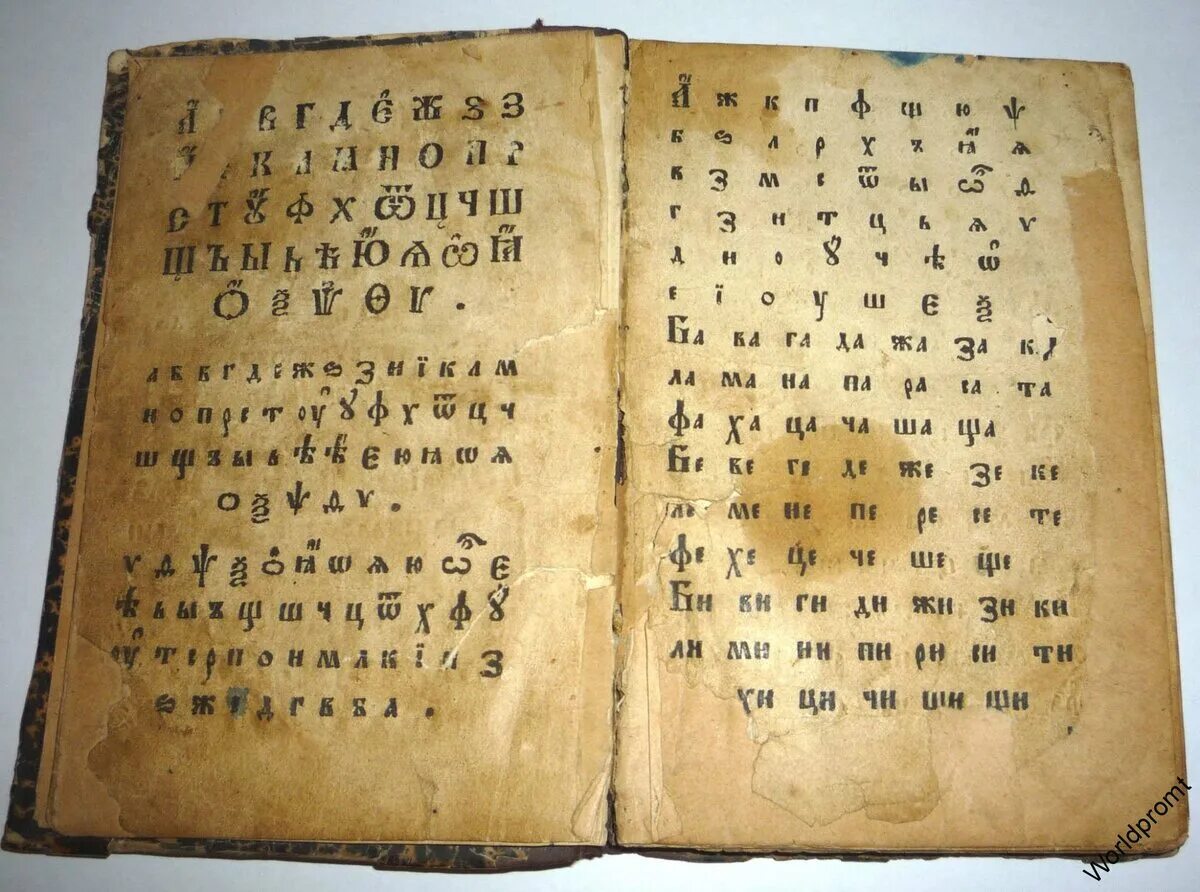 А в г д є ж ѕ з
к л м н о п р
с т ꙋ ф х ѿ ц ч ш
щ ъ ы ь ѣ ю ѧ ѡ ꙗ
ѻ ѯ ѱ ѳ ѵ .
а б в г д е ж ѕ з н ї к л м
н о п р с т оу ꙋ ф х ѿ ц ч
ш щ ъ ы ь ѣ ѣ є ю ꙗ ѡ ѧ
ѻ ѯ ѱ д ѵ .
ѵ д ѱ ѯ ѻ ꙗ ѡ ѧ ю ѽ є
ѣ ь ы ъ щ ш ч ц ѿ х ф ꙋ
оу т с р п о н м л к ї н з
ѕ ж д г в б а .
А ж к п ф ш ю ѱ
б ѕ л р х ъ ꙗ ѧ
в з м с ѿ ы ѽ д
г з н т ц ь ѧ ѵ
д н о ꙋ ч ѣ ѡ
е ї о у ш є ѯ
Ба ва га да жа за кл
ла ма на па ра са та
фа ха ца ча ша ща
Бе ве ге де же зе ке
ле ме не пе ре се те
фе хе це че ше ще
Би ви ги ди жи зи ки
ли ми ни пи ри си ти
хи ци чи ши щи
Worldpromt